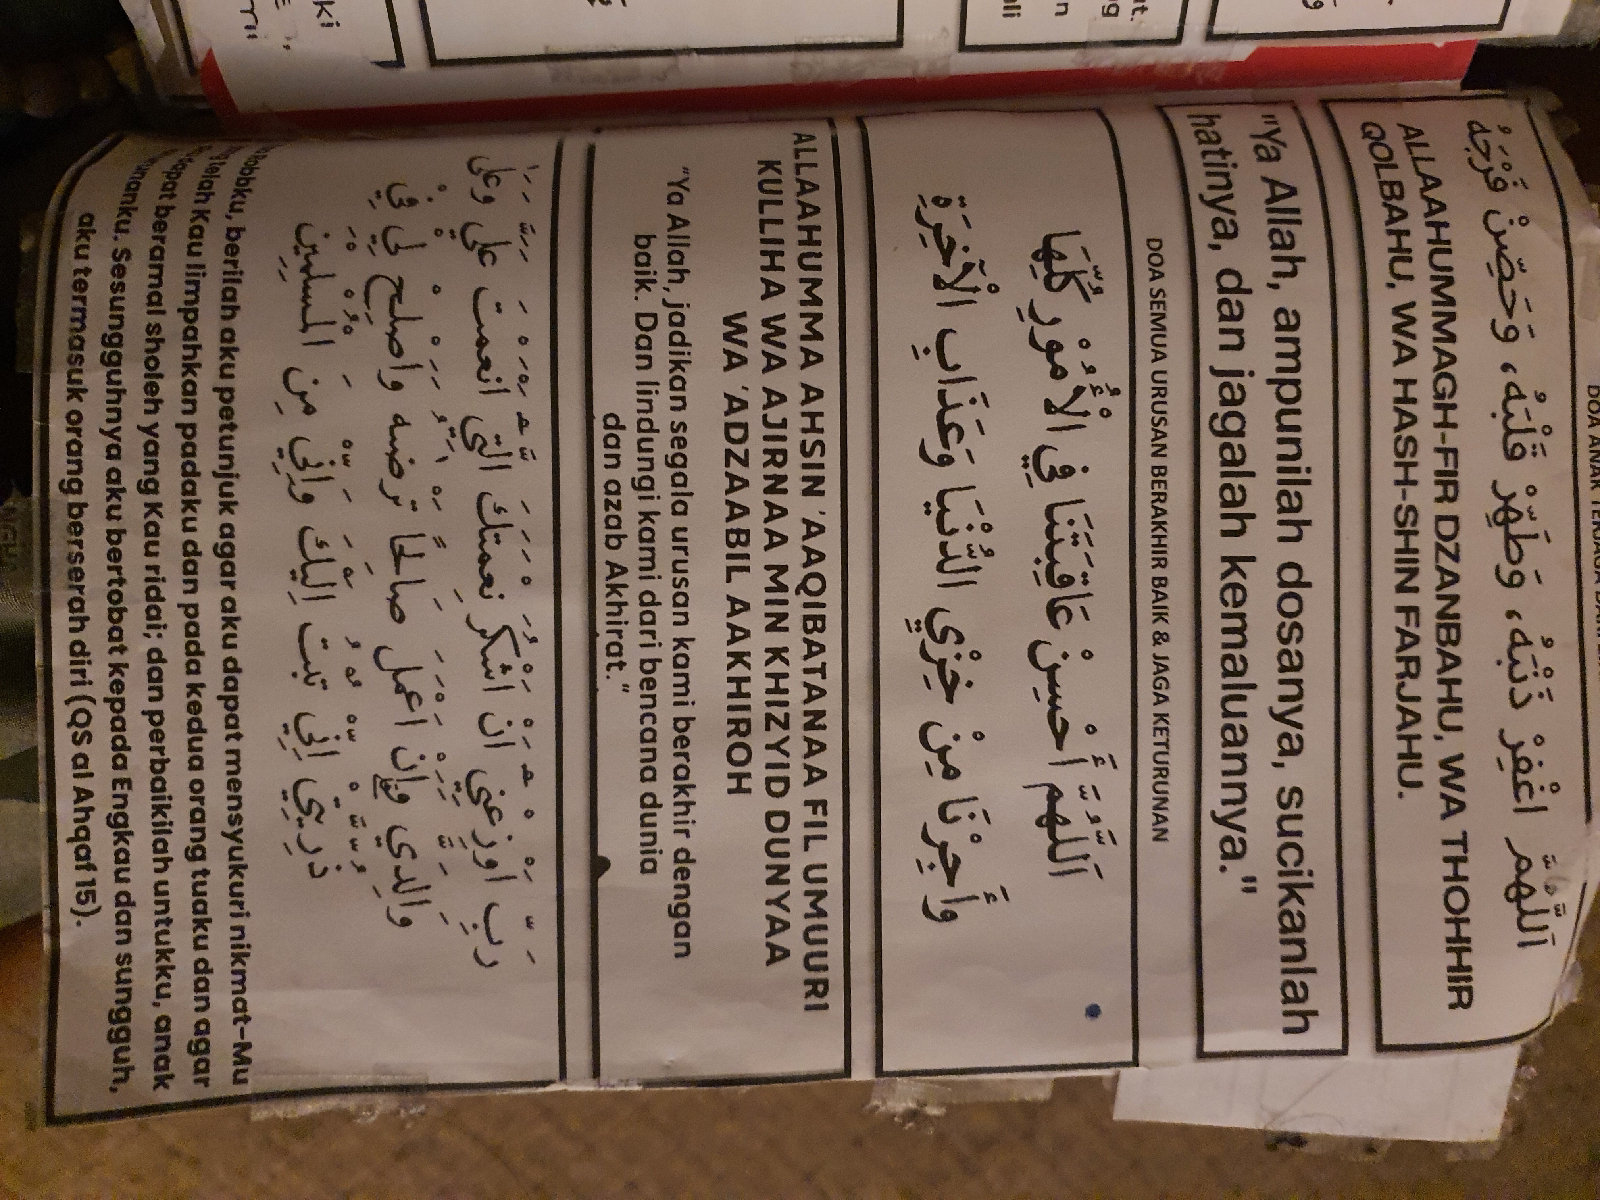 DOA ANAK TERJAGA DARI
اَللّٰهُمَّ اغْفِرْ ذَنْبَهُ، وَطَهِّرْ قَلْبَهُ، وَحَصِّنْ فَرْجَهُ
ALLAAHUMMAGH-FIR DZANBAHU, WA THOHHIR
QOLBAHU, WA HASH-SHIN FARJAHU.
"Ya Allah, ampunilah dosanya, sucikanlah
hatinya, dan jagalah kemaluannya."
DOA SEMUA URUSAN BERAKHIR BAIK & JAGA KETURUNAN
اَللَّهُمَّ أَحْسِنْ عَاقِبَتَنَا فِي الْأُمُوْرِ كُلِّهَا
وَأَجِرْنَا مِنْ خِزْيِ الدُّنْيَا وَعَذَابِ الْآخِرَةِ
ALLAAHUMMA AHSIN 'AAQIBATANAA FIL UMUURI
KULLIHA WA AJIRNAA MIN KHIZYID DUNYAA
WA 'ADZAABIL AAKHIROH
"Ya Allah, jadikan segala urusan kami berakhir dengan
baik. Dan lindungi kami dari bencana dunia
dan azab Akhirat."
رَبِّ اَوْزِعْنِيْٓ اَنْ اَشْكُرَ نِعْمَتَكَ الَّتِيْٓ اَنْعَمْتَ عَلَيَّ وَعَلٰى
وَالِدَيَّ وَاَنْ اَعْمَلَ صَالِحًا تَرْضٰىهُ وَاَصْلِحْ لِيْ فِيْ
ذُرِّيَّتِيْ اِنِّيْ تُبْتُ اِلَيْكَ وَاِنِّيْ مِنَ الْمُسْلِمِيْنَ
berilah aku petunjuk agar aku dapat mensyukuri nikmat-Mu
telah Kau limpahkan padaku dan pada kedua orang tuaku dan agar
beramal sholeh yang Kau ridai; dan perbaikilah untukku, anak
Sesungguhnya aku bertobat kepada Engkau dan sungguh,
aku termasuk orang berserah diri (QS al Ahqaf 15).